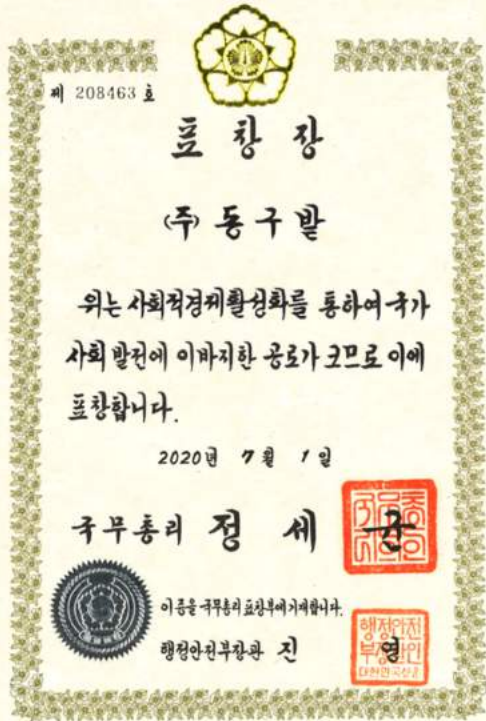 제 208463 호
표창장
(주) 동구밭
위는 사회적경제활성화를 통하여 국가
사회 발전에 이바지한 공로가 크므로 이에
표창합니다.
2020년 7월 1일
국무총리 정세균
이 증을 국무총리 표창부에 기재합니다.
행정안전부장관 진 영
행정안전
부장관인